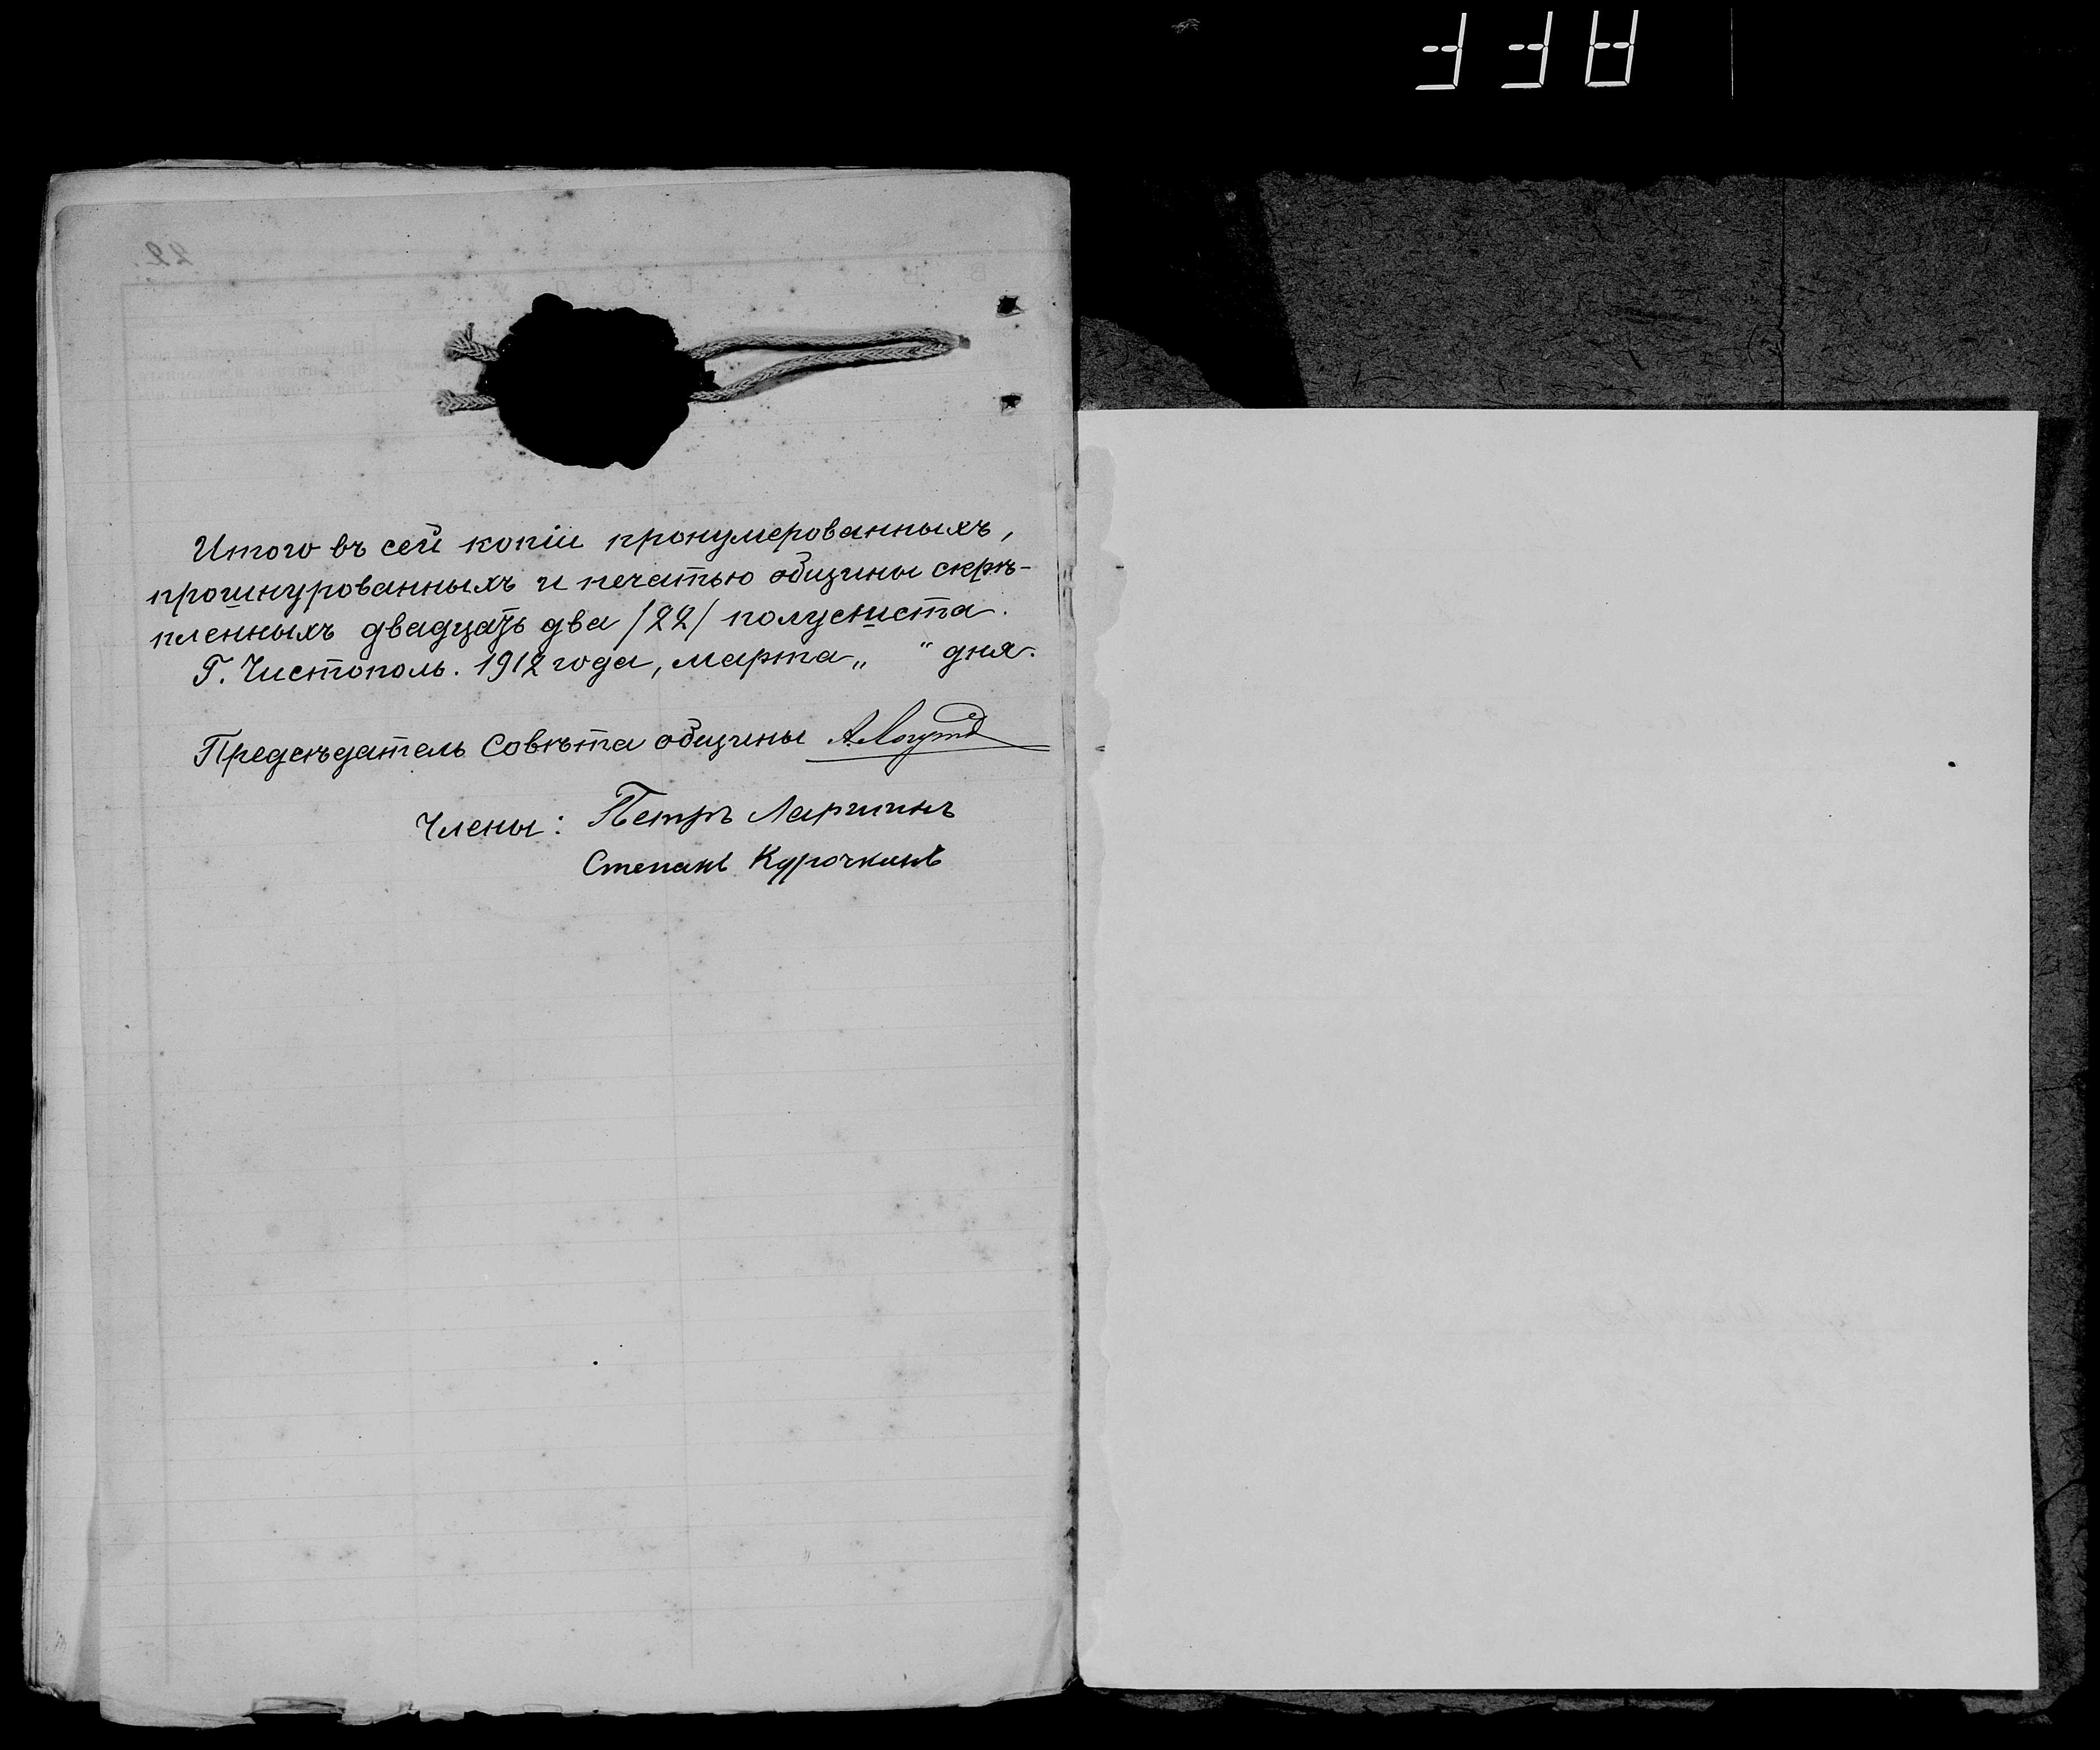 Итого въ сей копіи пронумерованныхъ,
прошнурованныхъ и печатью общины скрѣ-
пленныхъ двадцать два /22/ полулиста.
Г. Чистополь. 1912 года, марта „ “ дня.
Предсѣдатель Совѣта общины А.
Члены: Петръ Ларшинъ
Степанъ Курочкинъ